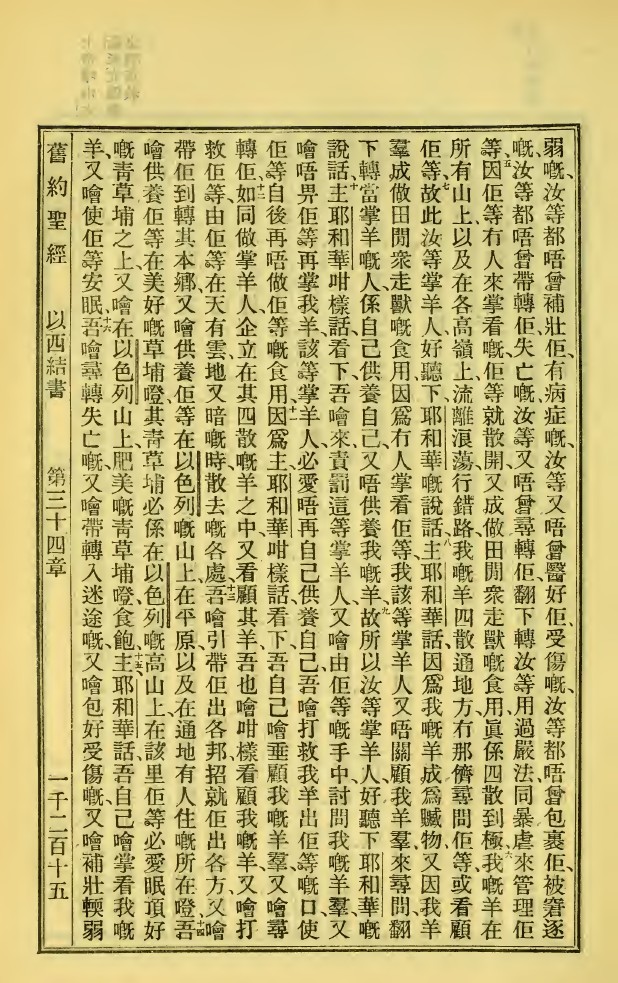 弱嘅、汝等都唔曾補壯佢、有病症嘅、汝等又唔曾醫好佢、受傷嘅、汝等都唔曾包裹佢、被窘逐
嘅、汝等都唔曾帶轉佢、失亡嘅、汝等又唔曾尋轉佢、翻下轉汝等用過嚴法同暴虐來管理佢
等、五因佢等冇人來掌看嘅、佢等就散開、又成做田閒衆走獸嘅食用、眞係四散到極、六我嘅羊在
所有山上、以及在各高嶺上、流離浪蕩行錯路、我嘅羊四散通地方、冇那儕尋問佢等、或看顧
佢等、七故此汝等掌羊人、好聽下耶和華嘅說話、八主耶和華話、因爲我嘅羊成爲贓物、又因我羊
羣成做田閒衆走獸嘅食用、因爲冇人掌看佢等、我該等掌羊人又唔關顧我羊羣來尋問、翻
下轉當掌羊嘅人、係自己供養自己、又唔供養我嘅羊、九故所以汝等掌羊人、好聽下耶和華嘅
說話、十主耶和華咁樣話、看下、吾噲來責罰這等掌羊人、又噲由佢等嘅手中、討問我嘅羊羣、又
噲唔畀佢等再掌我羊、該等掌羊人必愛唔再自己供養自己、吾噲打救我羊出佢等嘅口、使
佢等自後再唔做佢等嘅食用、十一因爲主耶和華咁樣話、看下、吾自己噲垂顧我嘅羊羣、又噲尋
轉佢、十二如同做掌羊人、企立在其四散嘅羊之中、又看顧其羊、吾也噲咁樣看顧我嘅羊、又噲打
救佢等、由佢等在天有雲地又暗嘅時散去嘅各處、十三吾噲引帶佢出各邦、招就佢出各方、又噲
帶佢到轉其本鄉、又噲供養佢等在以色列嘅山上、在平原、以及在通地有人住嘅所在嶝、十四吾
噲供養佢等在美好嘅草埔嶝、其靑草埔必係在以色列嘅高山上、在該里佢等必愛眠頂好
嘅靑草埔之上、又噲在以色列山上、肥美嘅靑草埔嶝食飽、十五主耶和華話、吾自己噲掌看我嘅
羊、又噲使佢等安眠、十六吾噲尋轉失亡嘅、又噲帶轉入迷途嘅、又噲包好受傷嘅、又噲補壯輭弱
舊約聖經　以西結書　第三十四章　一千二百十五